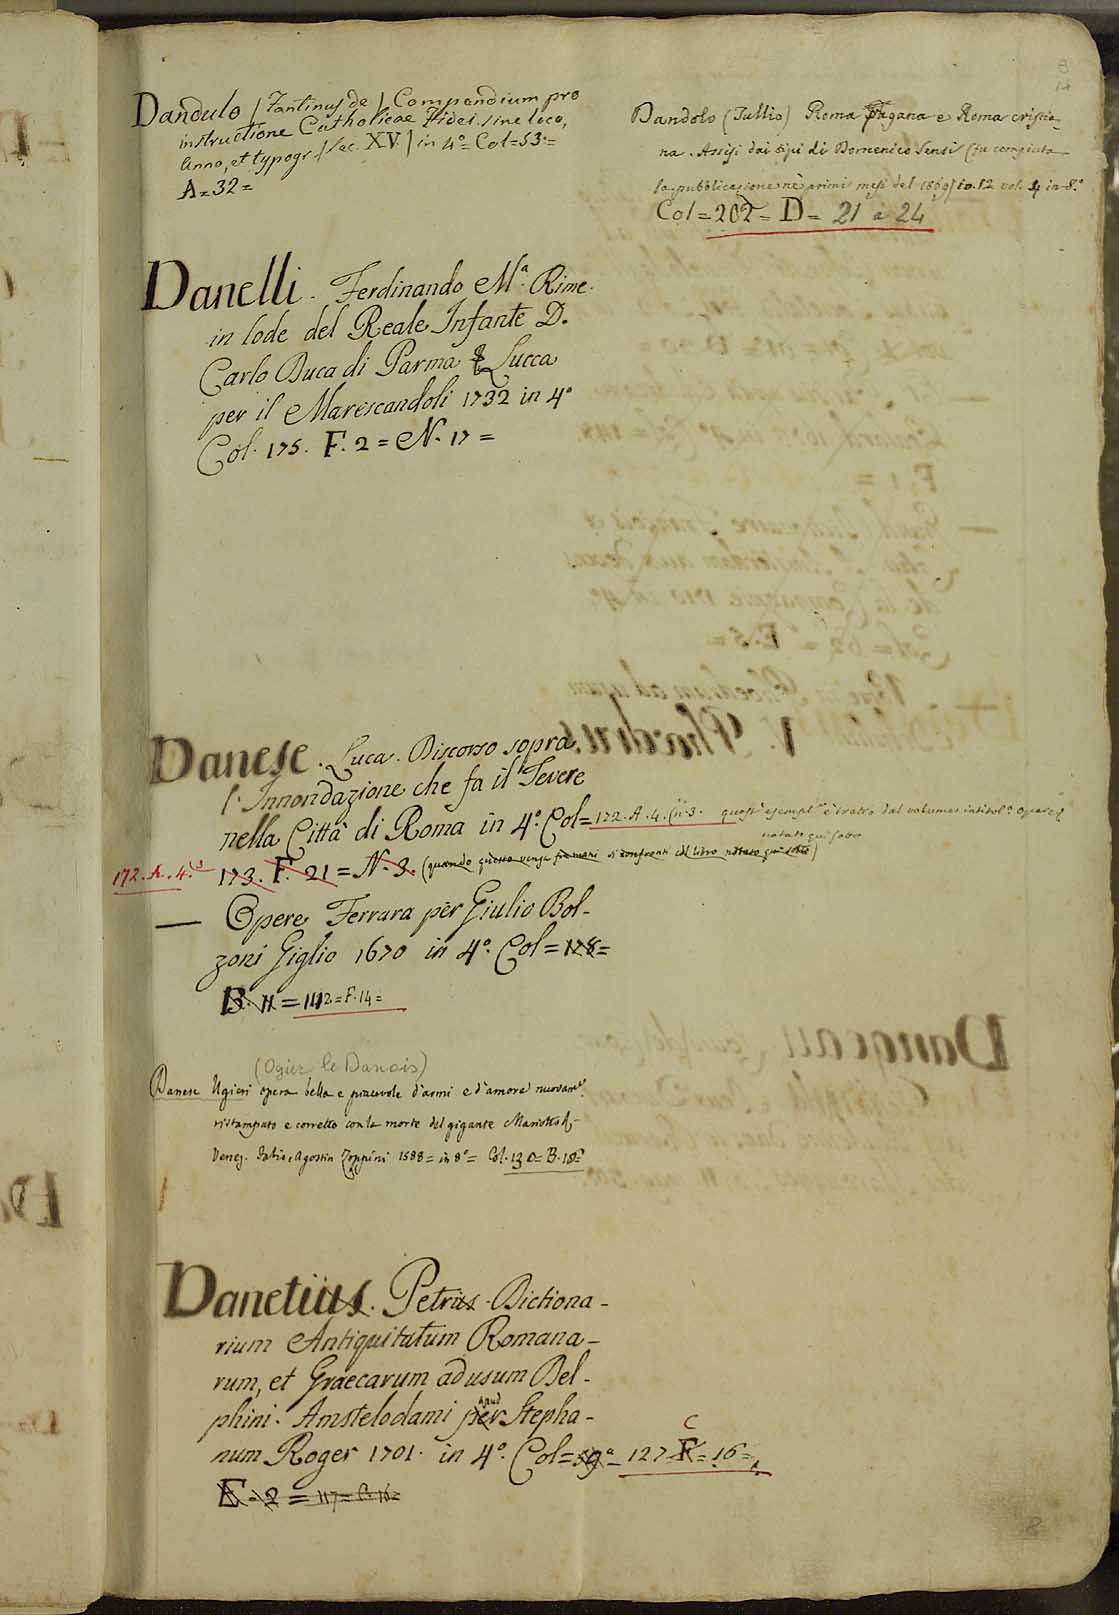 Dandulo / Fantinus de / Compendium pro
instructione Catholicae Fidei. sine loco,
anno, et typogr. / sec. XV / in 4º Col=53=
A=32=
Dandolo (Tullio) Roma Pagana e Roma cristia-
na. Assisi dai tipi di Domenico Sensi (fu compiuta
la pubblicazione nè primi mesi del 1869) in 12 vol. 4 in 8.º
Col=202= D= 21 a 24
Danelli. Ferdinando Mª. Rime
in lode del Reale Infante D.
Carlo Duca di Parma Lucca
per il Marescandoli 1732 in 4º
Col. 175. F. 2 = N. 17 =
Danese. Luca. Discorso sopra
l'Innondazione che fa il Tevere
nella Città di Roma in 4º. Col=172.A.4.(nº3. quest' esempl.e è tratto dal volume intitolº opere
notato qui sotto
172.A.4.(3 173. F. 21 = N. 3. (quando questo venga fra mani si confronti col libro notato qui sotto)
— Opere Ferrara per Giulio Bol-
zoni Giglio 1670 in 4º. Col=178=
B. 11 = 112=F.14=
(Ogier le Danois)
Danese Ugieri opera bella e piacevole d'armi e d'amore nuovamte
ristampato e corretto con la morte del gigante Mariotto &-
Venez. Fabio, Agostin Zoppini 1588= in 8º= Col. 130= B. 18=
Danetius. Petrus. Dictiona-
rium Antiquitatum Romana-
rum, et Graecarum ad usum Del-
phini. Amstelodami per apud Stepha-
num Roger 1701. in 4º. Col=59= 127 F C = 16=
E = 2 = 117= C. 16=
8